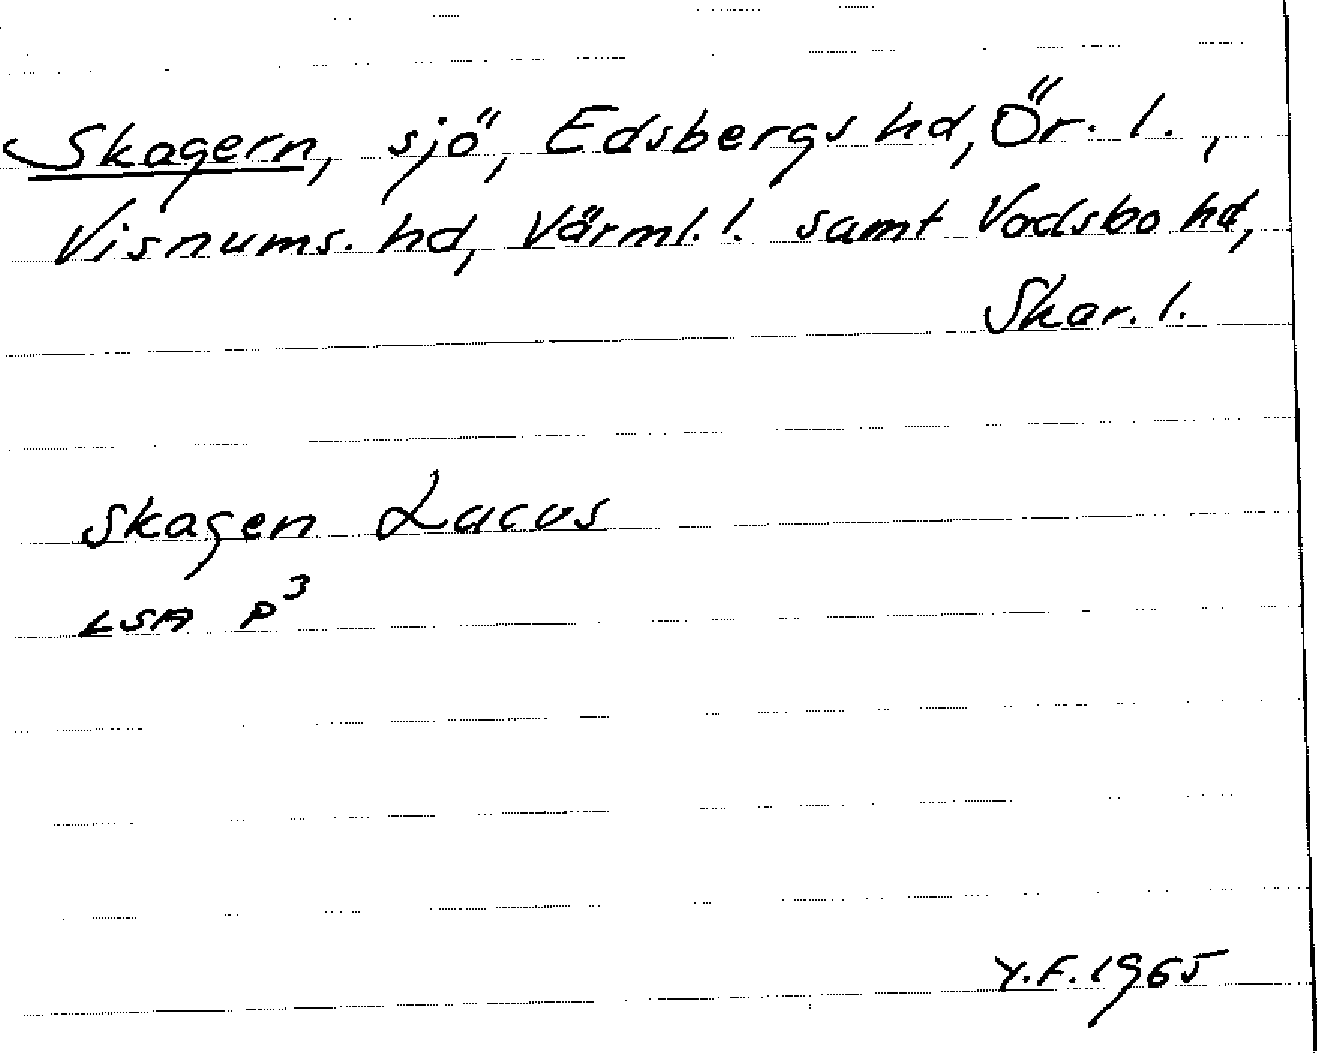 Skagern, sjö, Edsbergs hd, Ör. l.,
Visnums. hd, Värml. l. samt Vadsbo hd,
Skar. l.
Skagen Lacus
LSA P3
Y.F. 1965